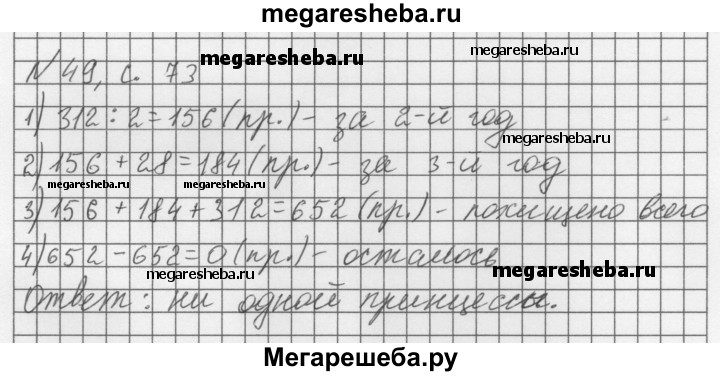 megaresheba.ru
№ 49, с. 73
megaresheba.ru
megaresheba.ru
1) 312 : 2 = 156 (пр.) - за 2-й год
megaresheba.ru
2) 156 + 28 = 184 (пр.) - за 3-й год
megaresheba.ru
megaresheba.ru
megaresheba.ru
3) 156 + 184 + 312 = 652 (пр.) - похищено всего
4) 652 - 652 = 0 (пр.) - осталось
megaresheba.ru
megaresheba.ru
Ответ: ни одной принцессы.
megaresheba.ru
Мегарешеба.ру